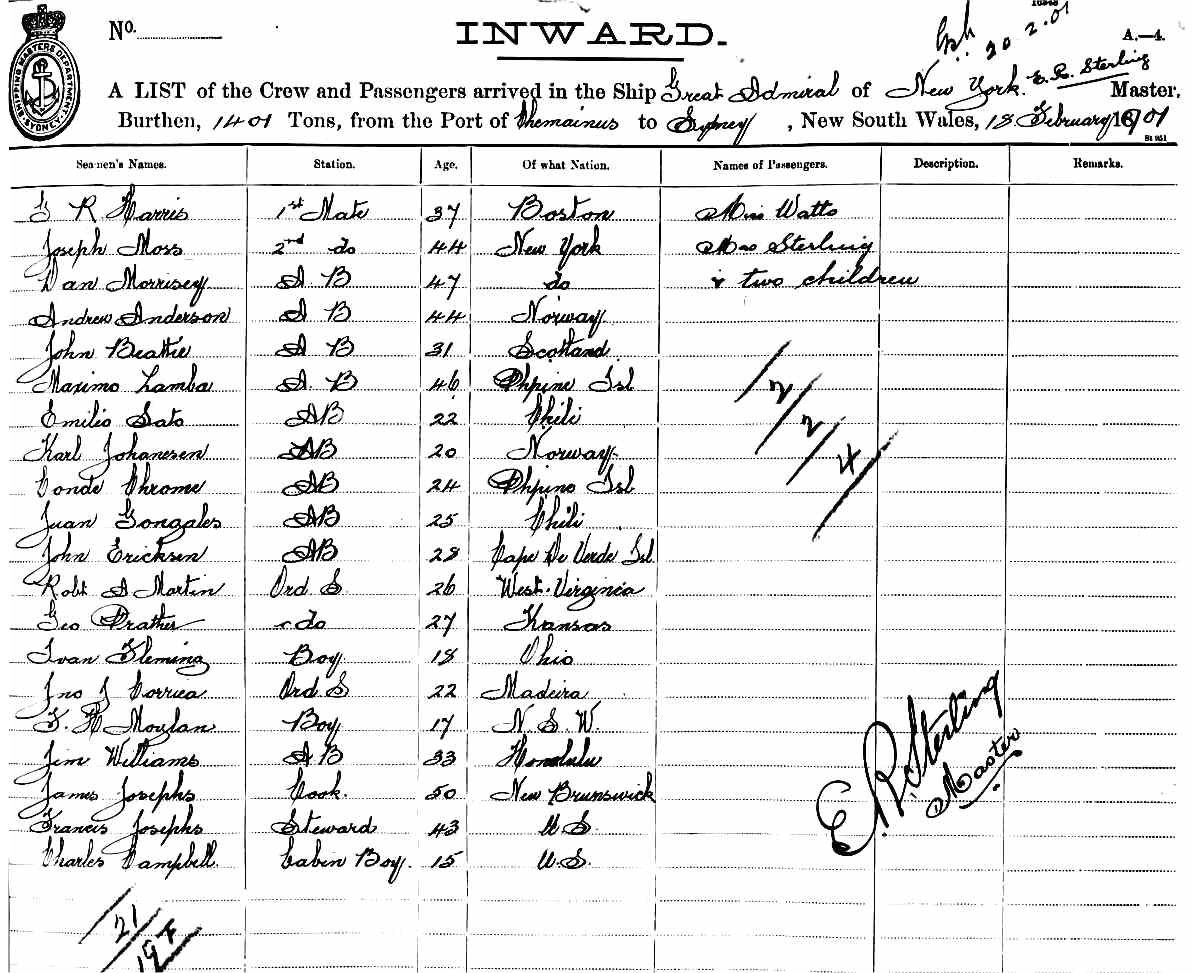 No.
INWARD.
20.2.01
A.—4.
SHIPPING MASTERS DEPARTMENT SYDNEY
A LIST of the Crew and Passengers arrived in the Ship Great Admiral of New York. E. R. Sterling Master,
Burthen, 1401 Tons, from the Port of Chemainus to Sydney, New South Wales, 18 February 1901
Seamen's Names. Station. Age. Of what Nation. Names of Passengers. Description. Remarks.
R Harris 1st Mate 37 Boston Miss Watts
Joseph Moss 2nd do 44 New York Mrs Sterling
Dan Morrisey A B 47 do & two children
Andrew Anderson A B 44 Norway
John Beattie A B 31 Scotland
Maximo Lamba A. B 46 Phpine Isl
Emilio Sato AB 22 Chili
Karl Johanesen AB 20 Norway
Conde Chrome AB 24 Phpino Isl
Juan Gonzales AB 25 Chili
John Ericksen AB 28 Cape De Verde Isl
Robt A Martin Ord S 26 West Virginia
Geo Prather do 27 Kansas
Ivan Fleming Boy 18 Ohio
Jno J Correa Ord S 22 Madeira
F. H Moylan Boy 17 N S W.
Jim Williams A B 33 Honolulu
James Josephs Cook. 50 New Brunswick
Francis Josephs Steward 43 U S
Charles Campbell Cabin Boy. 15 U.S.
/2/2/4/
E. R. Sterling
Master
/21/
19 F